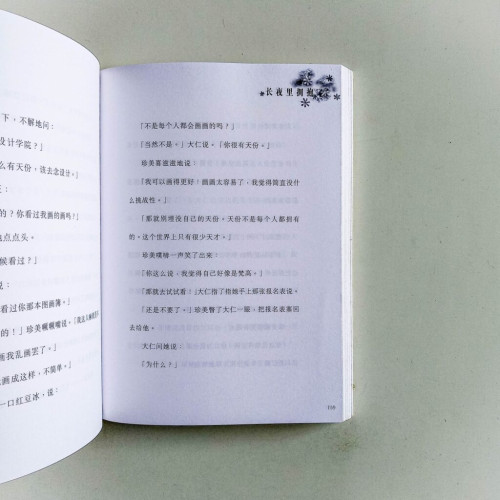 下，不解地问：
设计学院？」
么有天份，该去念设计。」
的？你看过我画的画吗？」
点点头。
候看过？」
说：
看过你那本图画簿。」
的！」珍美嘟嘟嘴说。
画我乱画罢了。」
画成这样，不简单。」
一口红豆冰，说：
长夜里拥抱
「不是每个人都会画画的吗？」
「当然不是。」大仁说。「你很有天份。」
珍美喜逐逐地说
「我可以画得更好！画画太容易了，我觉得简直没什
么挑战性。」
「那就别埋没自己的天份。天份不是每个人都拥有
的。这个世界上只有很少天才。」
珍美噗哧一声笑了出来：
「你这么说，我觉得自己好像是梵高。」
「那就去试试看！」大仁指了指她手上那张报名表说。
「还是不要了。」珍美瞥了大仁一眼，把报名表塞回
去给他。
大仁问她说
「为什么？」